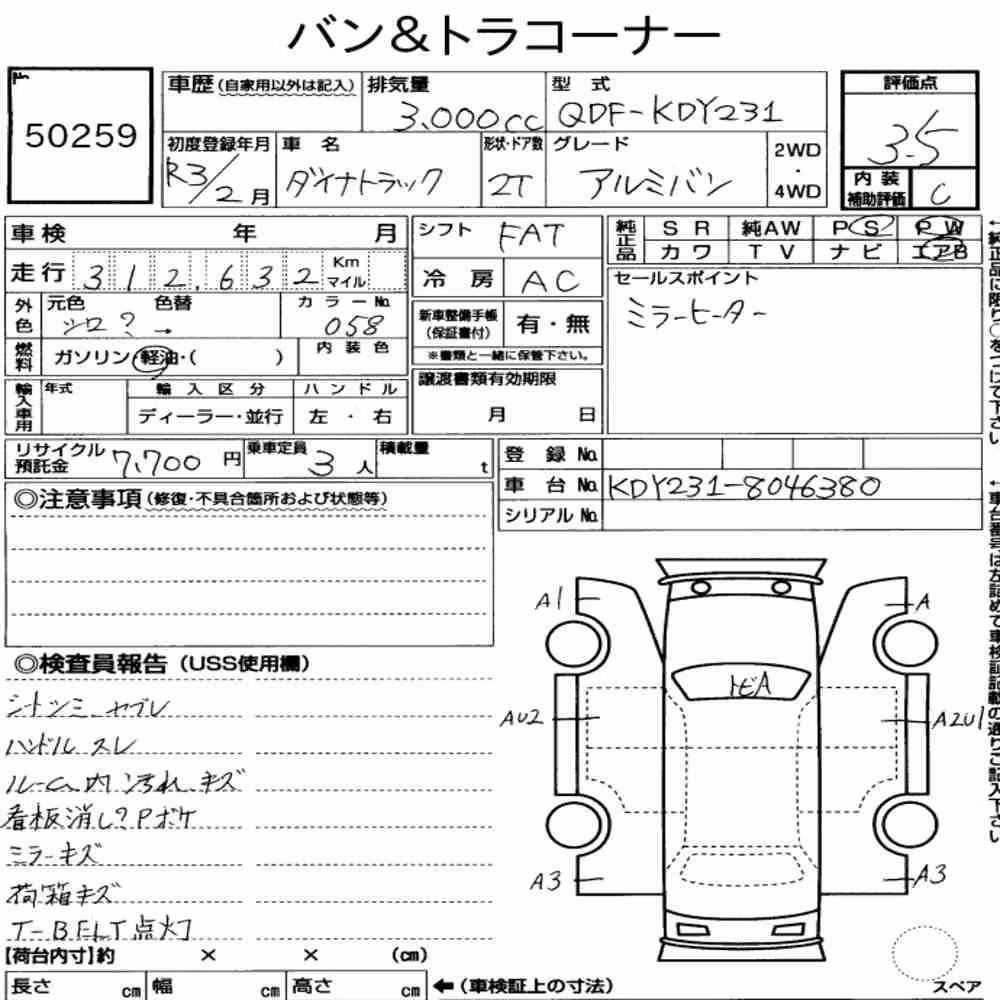 バン&トラコーナー
No.
50259
車歴(自家用以外は記入) 排気量 3,000cc 型式 QDF-KDY231
初度登録年月 R3/2月 車名 ダイナトラック 形状・ドア数 2T グレード アルミバン 2WD・4WD
評価点 3.5
内装補助評価 C
車検 年 月
走行 312,632 Km マイル
外色 元色 シロ? 色替 → カラーNo. 058
燃料 ガソリン・軽油・( ) 内装色
輸入車用 年式 輸入区分 ハンドル
ディーラー・並行 左・右
シフト FAT
冷房 AC
新車整備手帳(保証書付) 有・無
※書類と一緒に保管下さい。
譲渡書類有効期限
月 日
純正品 SR 純AW PS PW
カワ TV ナビ エアB
セールスポイント
ミラーヒーター
←純正品に限り○をつけて下さい
リサイクル預託金 7,700円 乗車定員 3人 積載量 t
登録No.
車台No. KDY231-8046380
シリアルNo.
←車台番号は左詰めで車検証記載の通りご記入下さい
◎注意事項(修復・不具合箇所および状態等)
◎検査員報告(USS使用欄)
シートシミ ヤブレ
ハンドル スレ
ルーム内汚れ キズ
看板消し?Pボケ
ミラーキズ
荷箱キズ
T-BELT点灯
A1
A
トビA
AU2
A2U1
A3
A3
スペア
【荷台内寸】約 × × (cm)
長さ cm 幅 cm 高さ cm ←(車検証上の寸法)